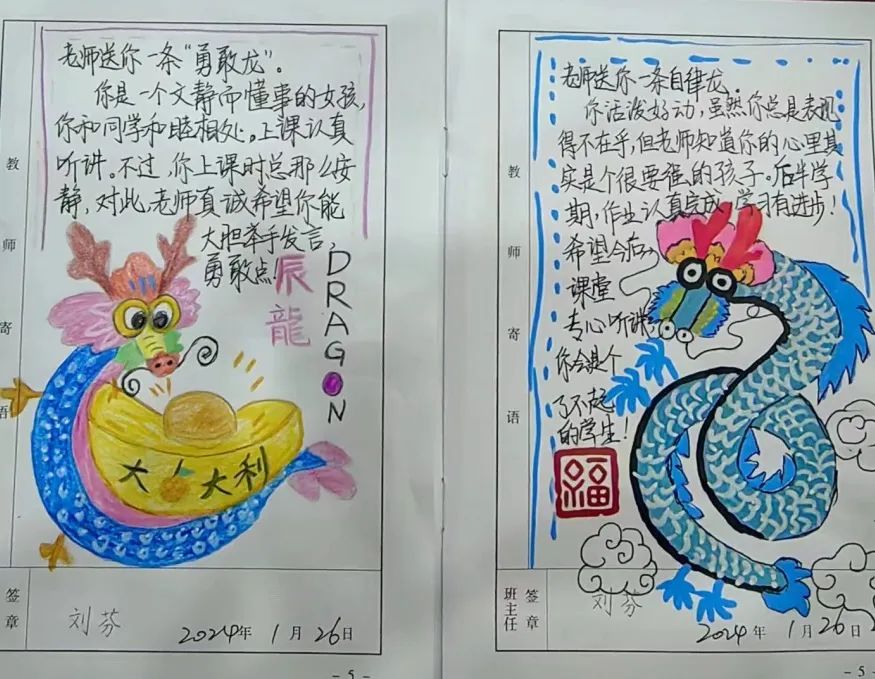 教师寄语
老师送你一条“勇敢龙”。
你是一个文静而懂事的女孩,
你和同学和睦相处。上课认真
听讲。不过,你上课时总那么安
静,对此,老师真诚希望你能
大胆举手发言,
勇敢点!
辰龍
DRAGON
大大利
签章
刘芬
2024年1月26日
-5-
教师寄语
老师送你一条自律龙。
你活泼好动,虽然你总是表现
得不在乎,但老师知道你的心里其
实是个很要强的孩子。后半学
期,作业认真完成,学习有进步!
希望今后
课堂
专心听讲
你会是个
了不起
的学生!
福
班主任
签章
刘芬
2024年1月26日
-5-